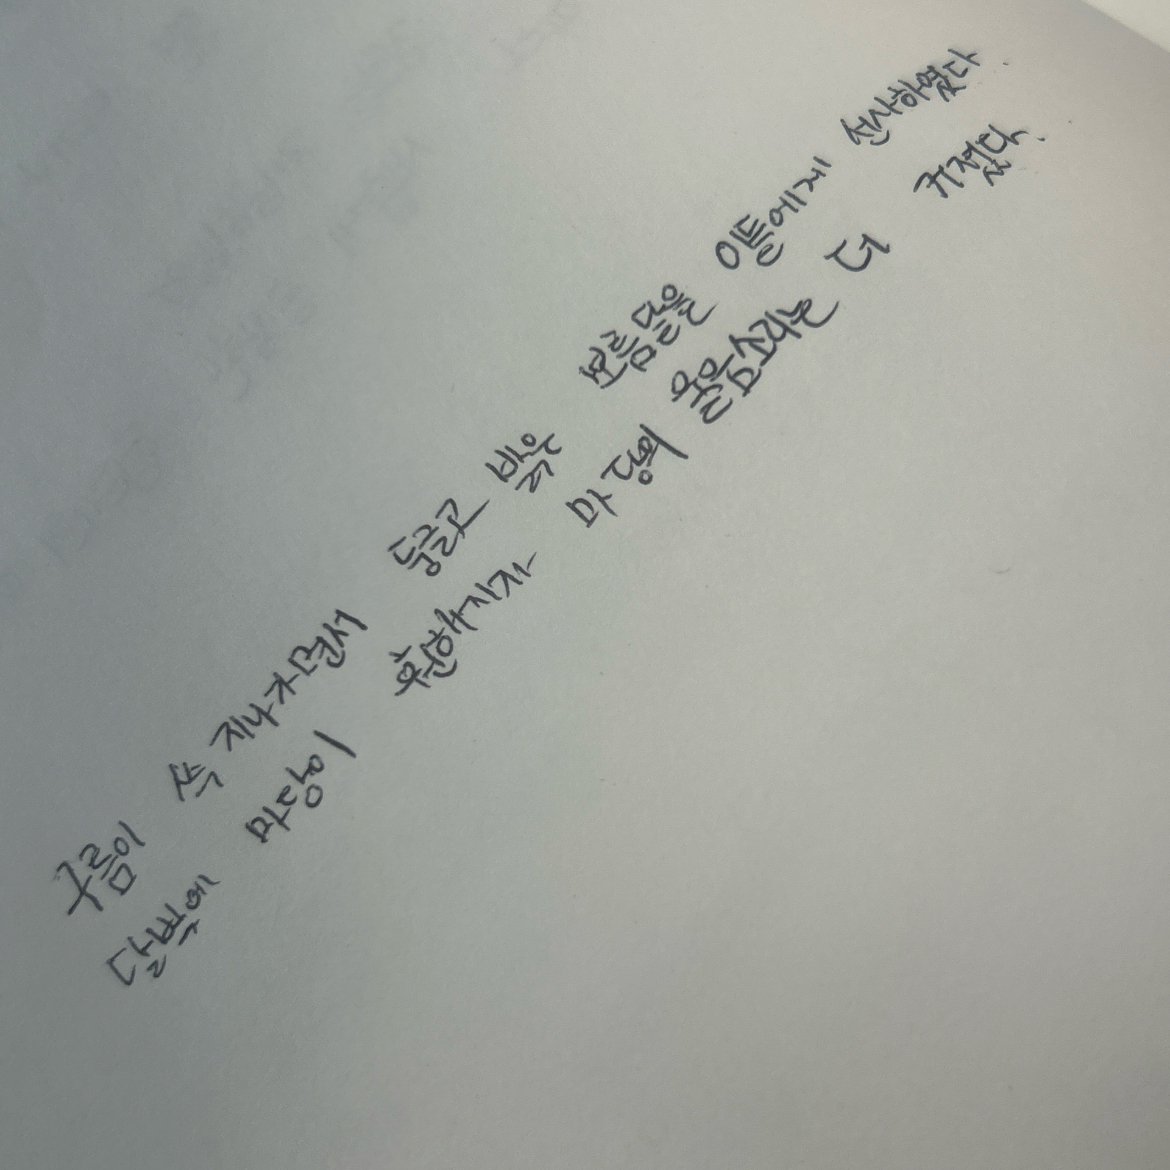 구름이 쓱 지나가면서 둥글고 밝은 보름달을 이들에게 선사하였다.
달빛에 마당이 훤해지자 마당의 울음소리는 더 커졌다.